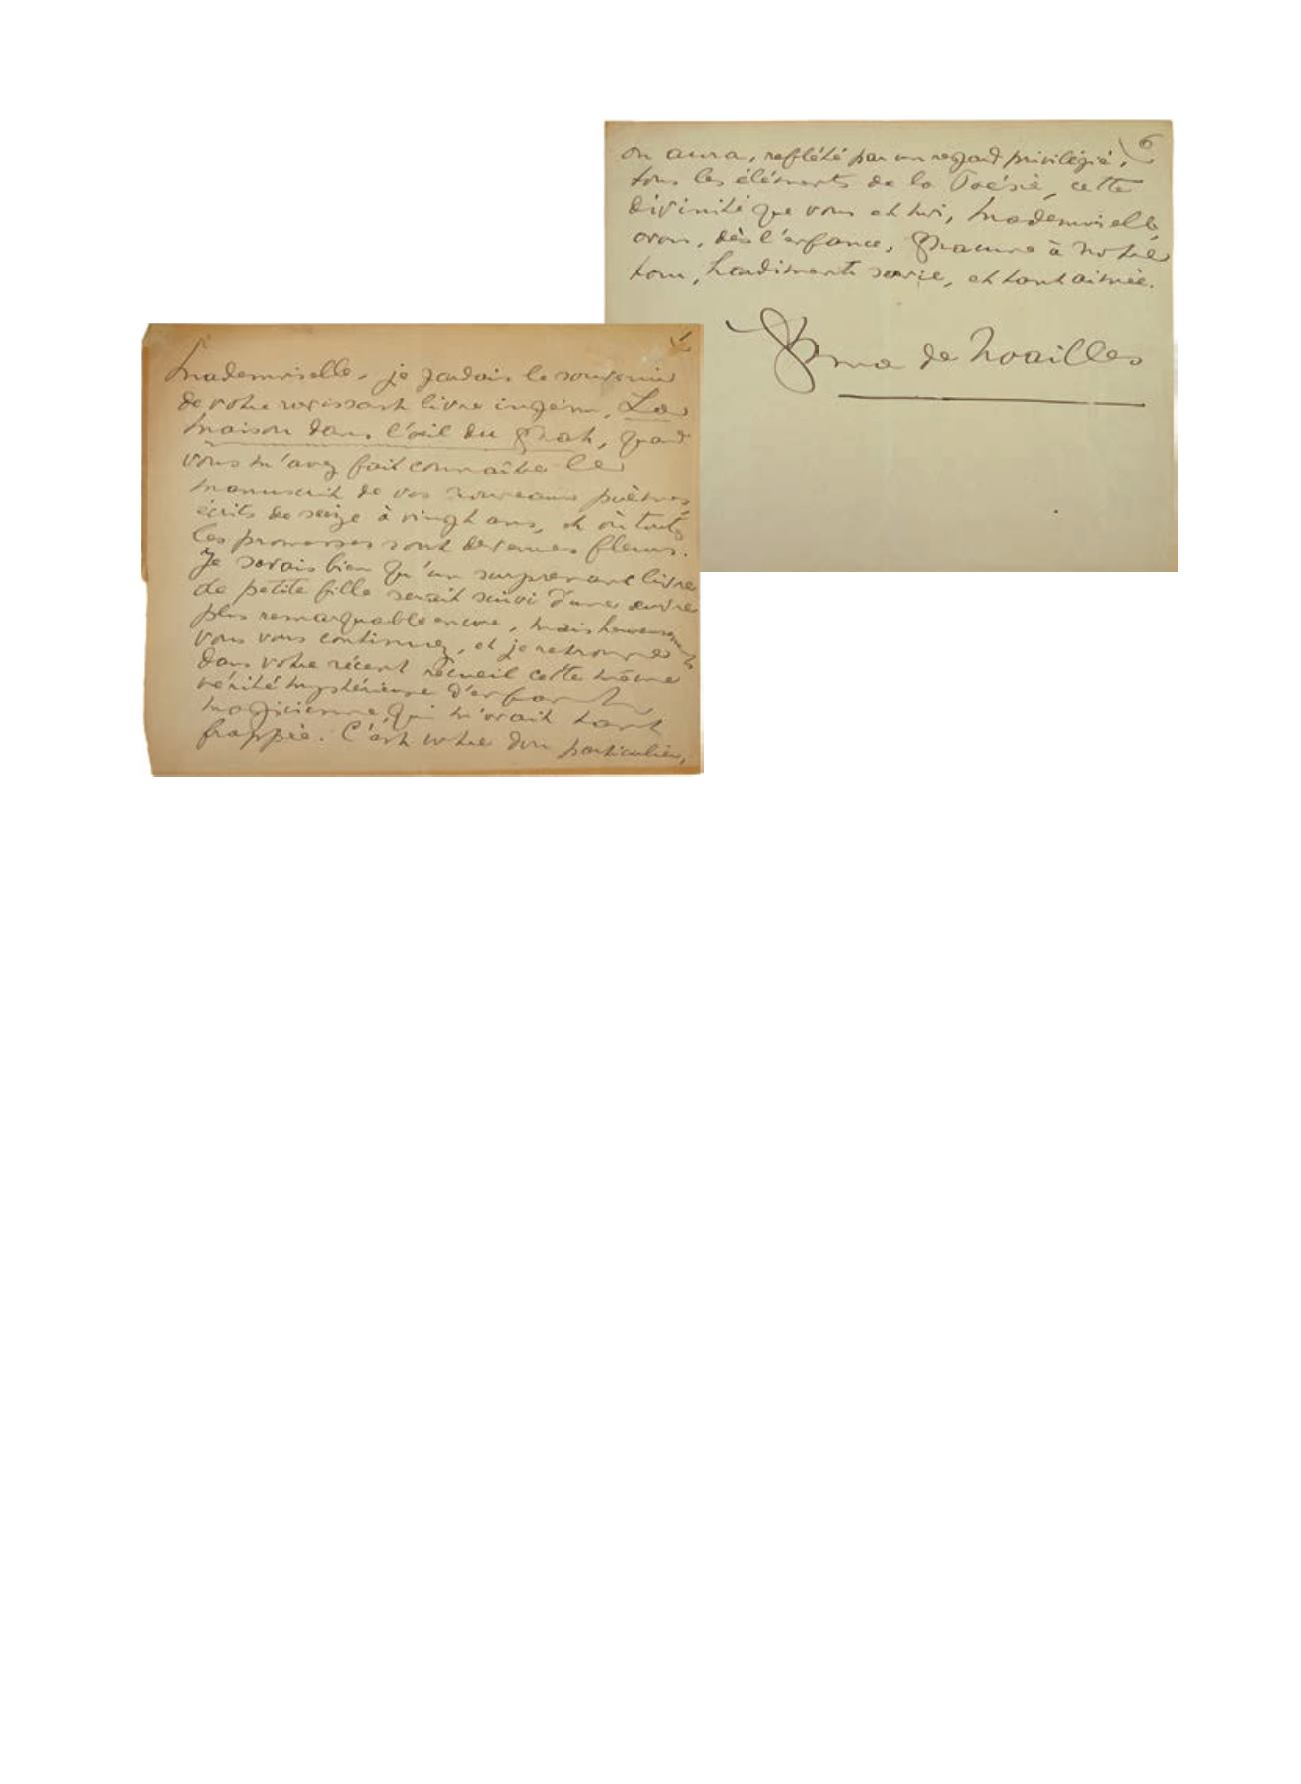 1
Mademoiselle, je gardais le souvenir
de votre ravissant livre ingénu, La
Maison dans l'œil du Chat, quand
vous m'avez fait connaître le
manuscrit de vos nouveaux poèmes,
écrits de seize à vingt ans, et où toutes
les promesses sont devenues fleurs.
Je savais bien qu'un surprenant livre
de petite fille serait suivi d'une œuvre
plus remarquable encore, mais heureusement
vous vous continuez, et je retrouve
dans votre récent recueil cette même
vérité mystérieuse d'enfant
magicienne, qui m'avait tant
frappée. C'est votre don particulier,
6
on aura, reflété par un regard privilégié,
tous les éléments de la Poésie, cette
divinité que vous et moi, Mademoiselle,
avons, dès l'enfance, chacune à notre
tour, hardiment servie, et tant aimée.
Anna de Noailles